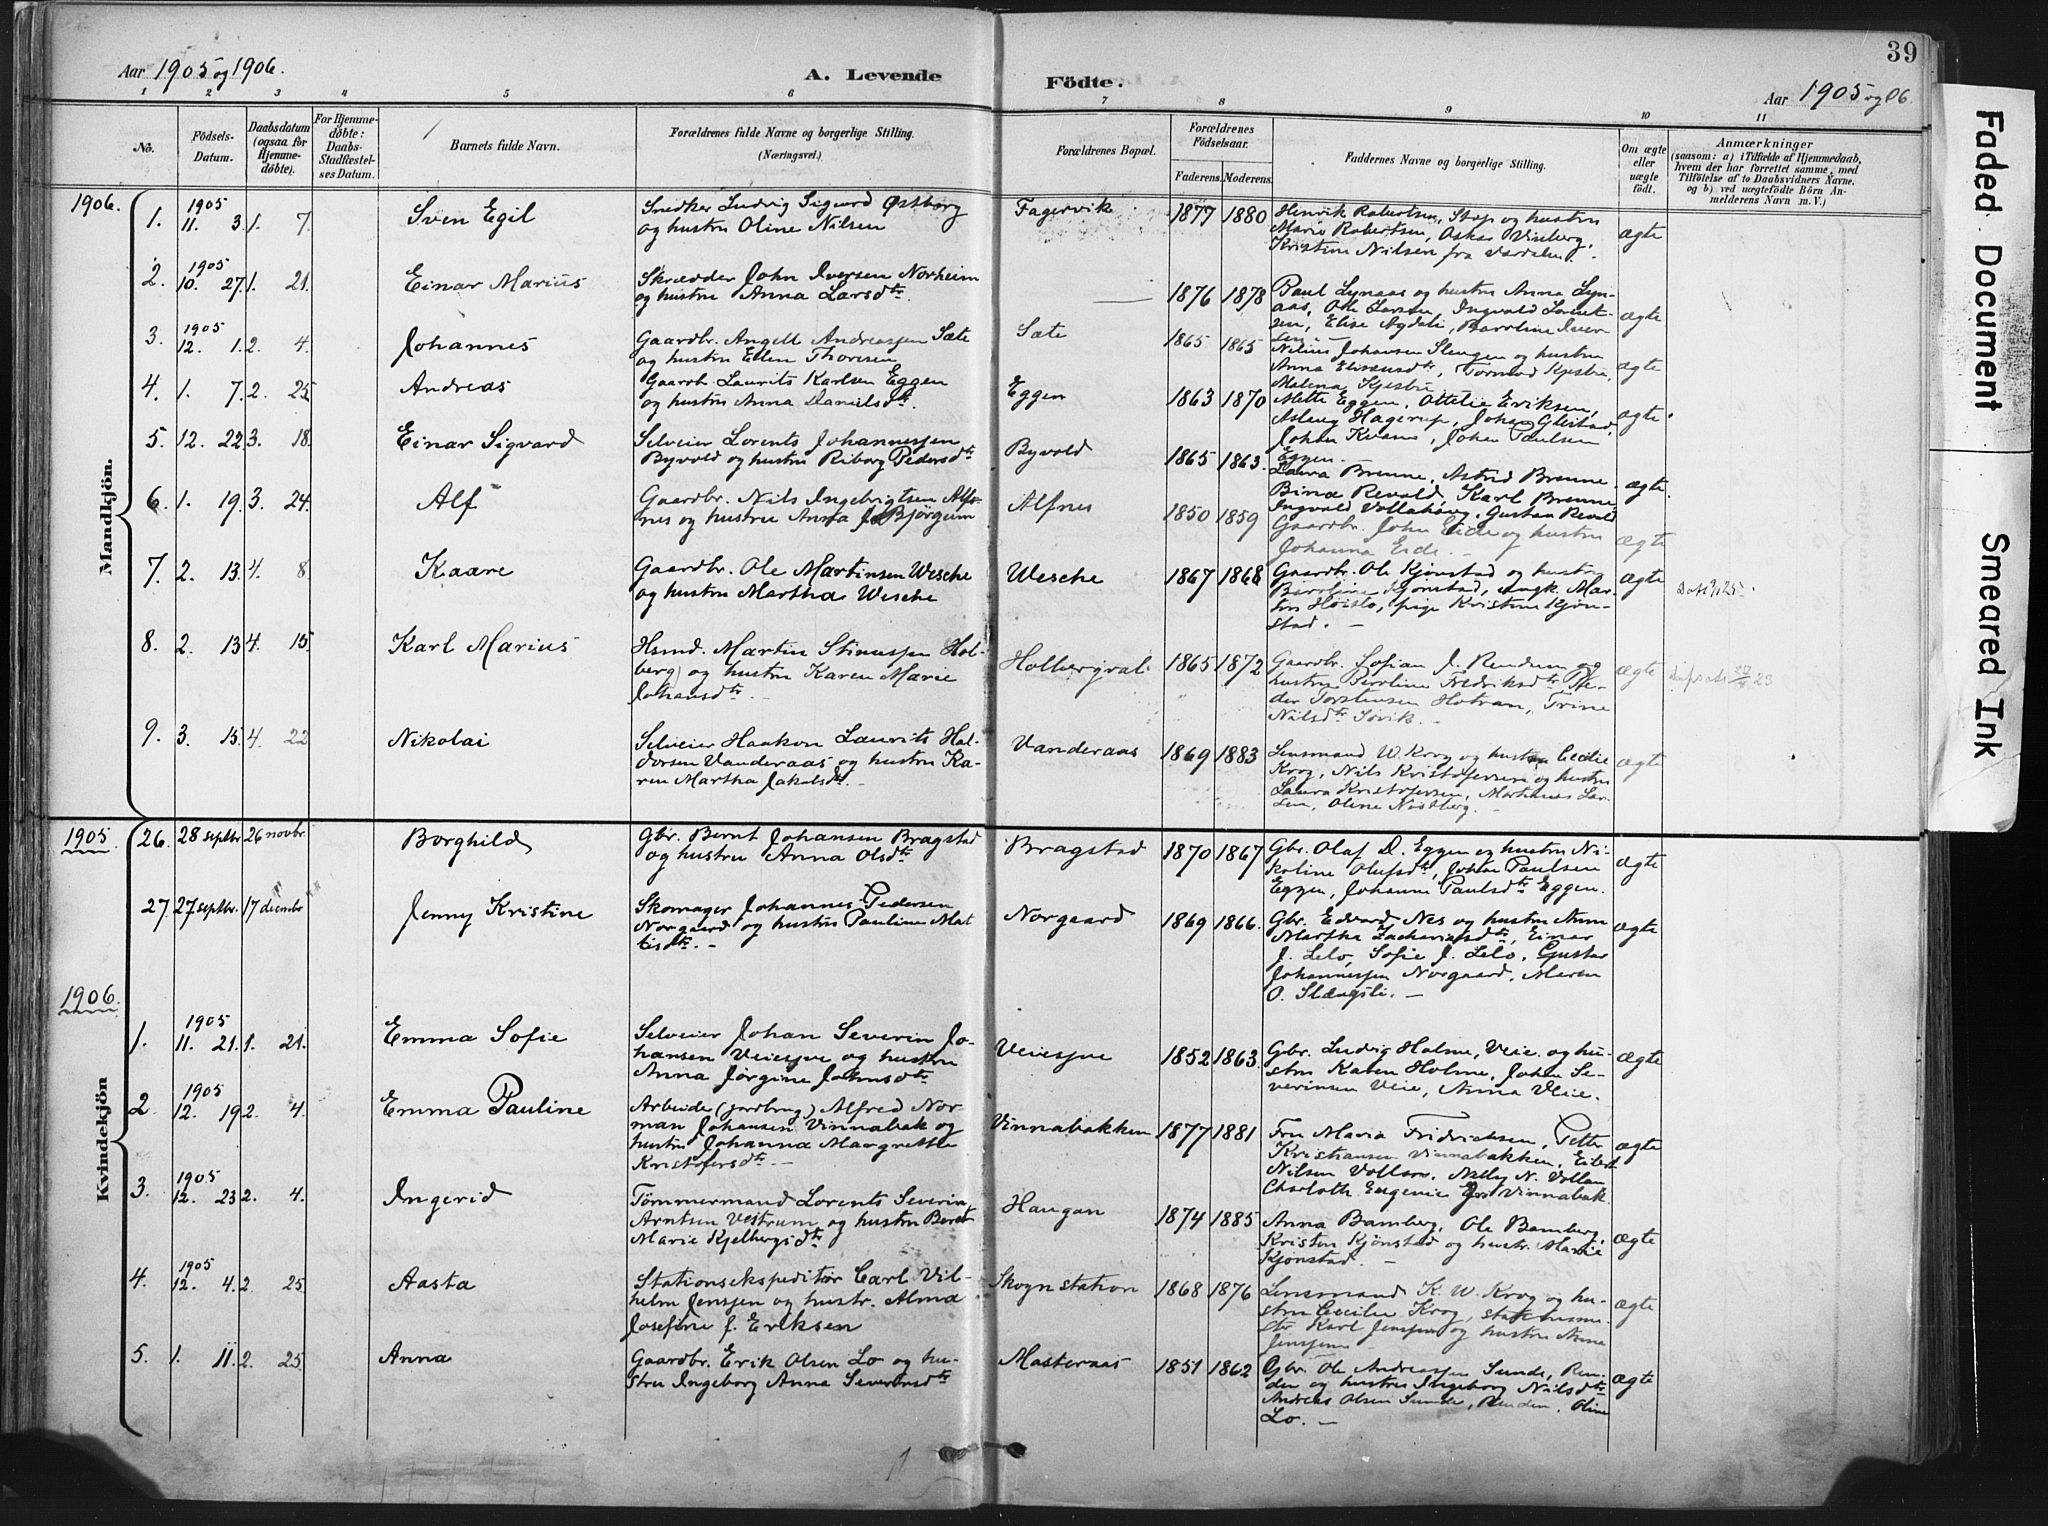 39
Aar 1905 og 1906.
A. Levende Födte.
Aar 1905 og 06.
1 2 3 4 5 6 7 8 9 10 11
No.
Födsels-Datum.
Daabsdatum (ogsaa for Hjemmedøbte).
For Hjemmedøbte: Daabs-Stadfæstelses Datum.
Barnets fulde Navn.
Forældrenes fulde Navne og borgerlige Stilling. (Næringsvei.)
Forældrenes Bopæl.
Forældrenes Födselsaar.
Faderens. Moderens.
Faddernes Navne og borgerlige Stilling.
Om ægte eller uægte födt.
Anmærkninger
(saasom: a) i Tilfælde af Hjemmedaab, hvem der har forrettet samme, med Tilföielse af to Daabsvidners Navne, og b) ved uægtefödte Börn Anmelderens Navn m. V.)
Mandkjön.
1906.
1. 1905 11. 3. 1. 7. Sven Egil
Snedker Ludvig Sigvard Østborg
og hustru Oline Nilsen
Fagervik 1877 1880
Henrik Robertsen, Stop og hustru
Marie Robertsen, Oskar Vinberg,
Kristine Nilsen fra Værdalen.
ægte
2. 1905 10. 27. 1. 21. Einar Marius
Skrædder John Iversen Norheim
og hustru Anna Larsdtr.
— 1876 1878
Paul Lynaas og hustru Anna Lyn-
aas, Ole Larsen, Ingvald Lorent-
sen, Elise Agdal, Beroline Iver-
sen.
ægte
3. 1905 12. 1. 2. 4. Johannes
Gaardbr. Angell Andreassen Sæte
og hustru Ellen Thoresen
Sæte 1865 1865
Nilius Johansen Slengen og hustru
Anna Elisausdtr, Tormod Kjesbu,
Malena Kjesbu
ægte
4. 1. 7. 2. 25. Andreas
Gaardbr. Laurits Karlsen Eggen
og hustru Anna Danielsdtr.
Eggen 1863 1870
Mette Eggen, Ottelie Eriksen,
Aslaug Hagerup, Johan Gleistad,
Johan Kvams, Johan Paulsen
Eggen.
ægte
5. 12. 22. 3. 18. Einar Sigvard
Selveier Lorents Johannessen
Byvold og hustru Riborg Pedersdtr
Byvold 1865 1863.
Laura Brenne, Astrid Brenne
Bina Revold, Karl Brenne,
Ingvald Vollahaug, Gustav Revold
ægte.
6. 1. 19. 3. 24. Alf
Gaardbr. Nils Ingebrigtsen Alf-
nes og hustru Anna J. Bjørgum
Alfnes 1850 1859
Gaardbr. John Eide og hustru
Johanna Eide. —
ægte
7. 2. 13. 4. 8 Kaare
Gaardbr. Ole Martinsen Wesche
og hustru Martha Wesche
Wesche 1867 1868
Gaardbr. Ole Kjønstad og hustru
Beroline Kjønstad, ungk. Mar-
tin Høislo, pige Kristine Kjøn-
stad. —
ægte
8. 2. 13 4. 15. Karl Marius
Hsmd. Martin Stinussen Hol-
berg) og hustru Karen Marie
Johansdtr —
Holbergval 1865 1872
Gaardbr. Sofian J. Rendum og
hustru Beroline Fredriksdtr. Pe-
der Torstensen Hotran, Trine
Nilsdtr Sørvik. —
ægte
9. 3. 15. 4. 22 Nikolai
Selveier Haakon Laurits Hal-
dorsen Vanderaas og hustru Ka-
ren Martha Jakobsdtr. —
Vanderaas 1869 1883
Lensmand W. Krog og hustru Cecilie
Krog, Nils Kristofersen og hustru
Laura Kristofersen, Martinus Lar-
sen, Oline Nordberg. —
ægte
Kvindekjön
1905
26. 28 septbr. 26 novbr. Borghild
Gbr. Bernt Johansen Bragstad
og hustru Anna Olsdtr.
Bragstad 1870 1867
Gbr. Olaf D. Eggen og hustru Ni-
koline Olufsdtr, Johan Paulsen
Eggen, Johanne Paulsdtr Eggen.
ægte
27. 27 septbr. 17 decembr Jenny Kristine
Skomager Johannes Pedersen
Norgaard og hustru Pauline Mat-
tisdtr. —
Norgaard 1869 1866.
Gbr. Edvard Nes og hustru Anna
Martha Zachariasdtr, Einar
J. Lelo, Sofie J. Lelo, Gustav
Johannessen Norgaard, Maren
O. Slængsli. —
ægte
1906.
1. 1905 11. 21. 1. 21. Emma Sofie
Selveier Johan Severin Jo-
hansen Veiesøve og hustru
Anna Jørgine Johnsdtr
Veiesøve 1852 1863.
Gbr. Ludvig Holme, Veie og hu-
stru Karen Holme, Johan Se-
verinsen Veie, Anna Veie.
ægte
2. 1905 12. 19. 2. 4. Emma Pauline
Arbeider (jordbrug) Alfred Nor-
man Johansen Vinnabak og
hustru Johanna Margrethe
Kristofersdtr. —
Vinnabakken 1877 1881
Fru Maria Fridrichsen, Petter
Kristiansen Vinnabakken, Eilert
Nilsen Vollan, Nelly N. Vollan
Charloth Eugenie Vinnabak.
ægte
3. 1905 12. 23 2. 4. Ingerid
Tømmermand Lorents Severin
Arntsen Vestrum og hustru Beret
Marie Kjelbergsdtr
Haugan 1874 1885
Anna Bamberg, Ole Bamberg,
Kristen Kjønstad og hustr. Marie
Kjønstad. —
ægte
4. 1905 12. 4. 2. 25. Aasta
Stationsekspeditør Carl Vil-
helm Jenssen og hustr. Alma
Josefine f. Eriksen
Skogn station 1868 1876
Lensmand K. W. Krog og hu-
stru Cecilie Krog, stationsme-
ster Karl Jenssen og hustru Anna
Jenssen —
ægte
5. 1. 11. 2. 25. Anna
Gaardbr. Erik Olsen Lo og hu-
stru Ingeborg Anna Severinsdtr
Masteraas 1851 1862
Gbr. Ole Andreassen Sunde, Ren-
den og hustru Ingeborg Nilsdtr
Andreas Olsen Sunde, Renden, Oline
Lo. —
ægte
Faded Document
Smeared Ink